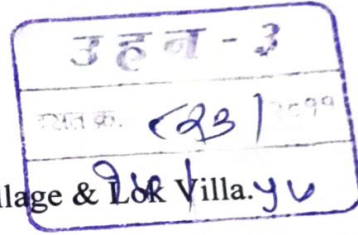 उहन - ३
दस्त क्र. (२३) २०११
llage & Lok Villa.